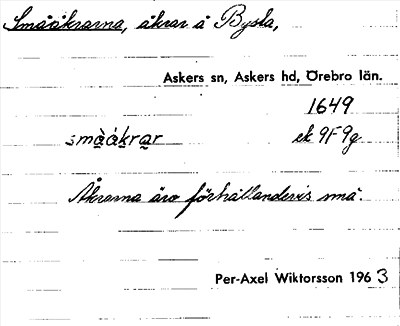 Smååkrarna, åkrar å Bysta,
Askers sn, Askers hd, Örebro län.
1649
smàákrar ek 9F9g
Åkrarna äro förhållandevis små.
Per-Axel Wiktorsson 1963